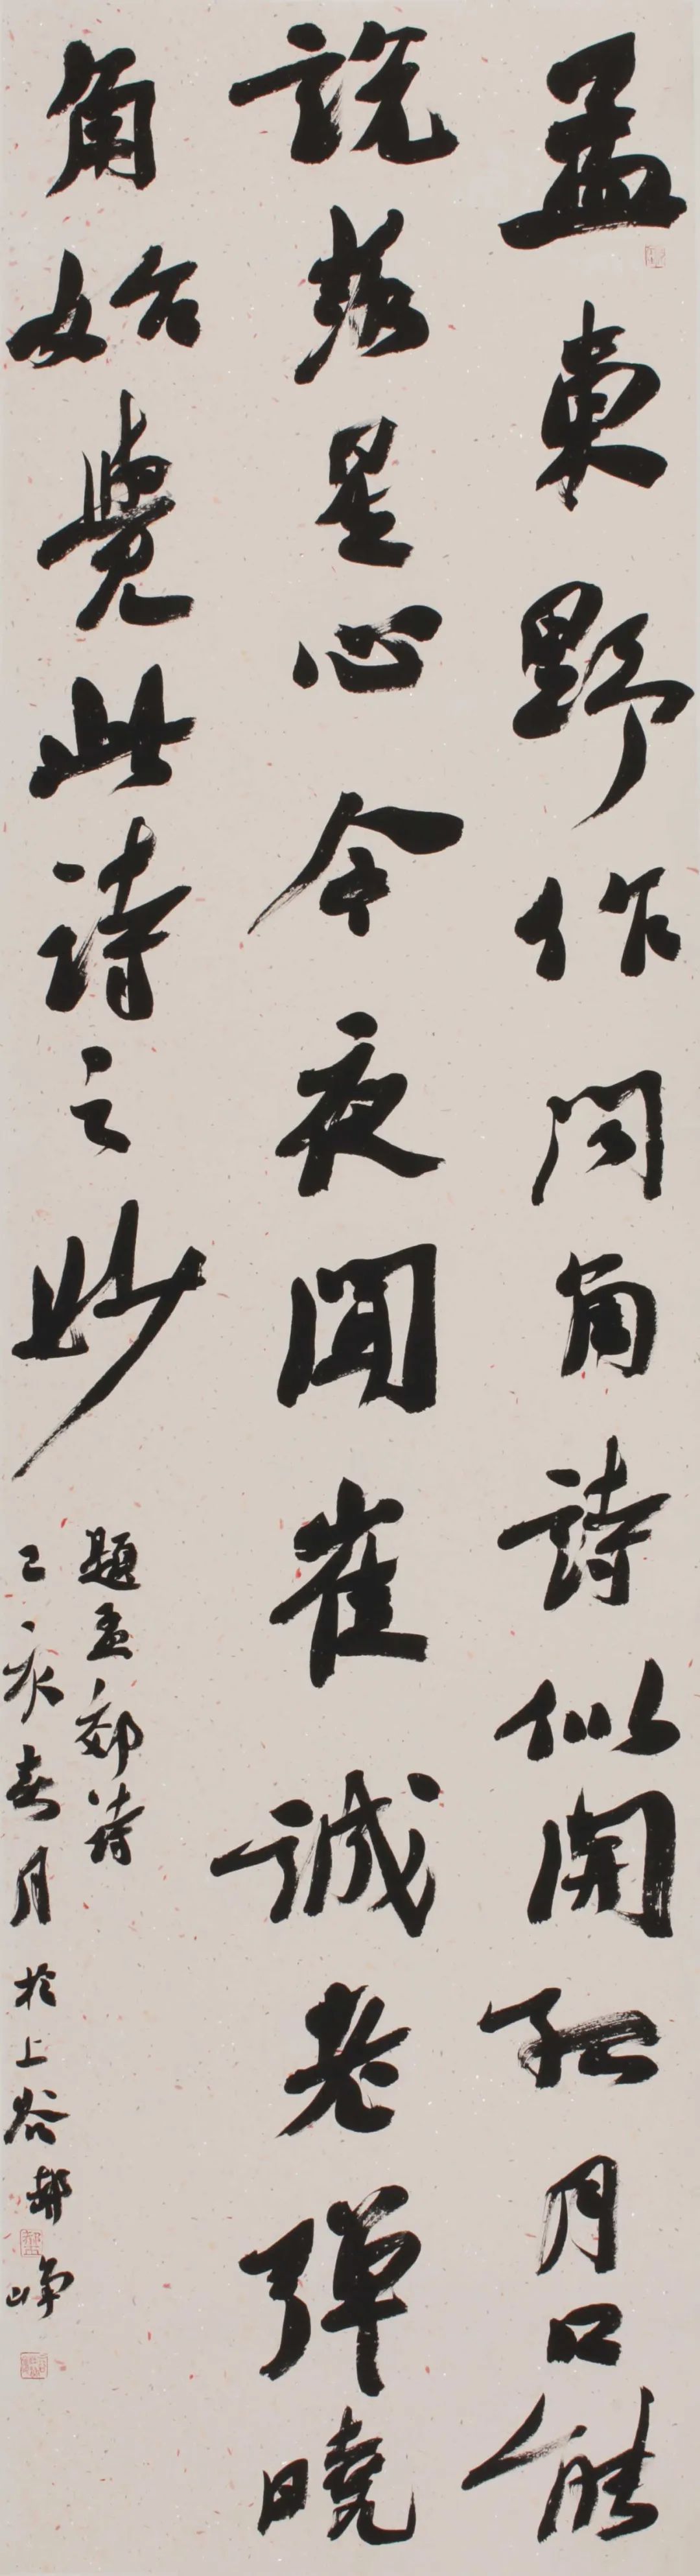 孟東野作問角詩似開孤月口能
說落星心今夜聞崔誠老彈曉
角始覺此詩之妙
題孟郊詩
己亥春月於上谷郝崢